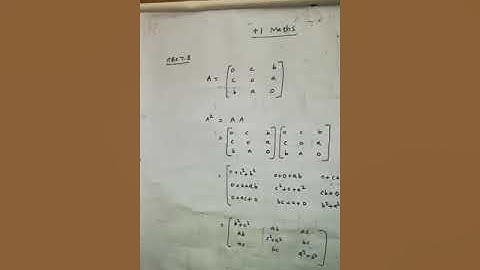 +1 Maths
A = [0 c b
c 0 a
b a 0]
A² = A A
= [0 c b [0 c b
c 0 a c 0 a
b a 0] b a 0]
= [0+c²+b² 0+0+ab 0+c+
0+0+ab c²+0+a² cb+0
0+ac+0 bc+0+0 b²+a²
= [b²+c² ab ac
ab c²+a² bc
ac bc a²+b²]